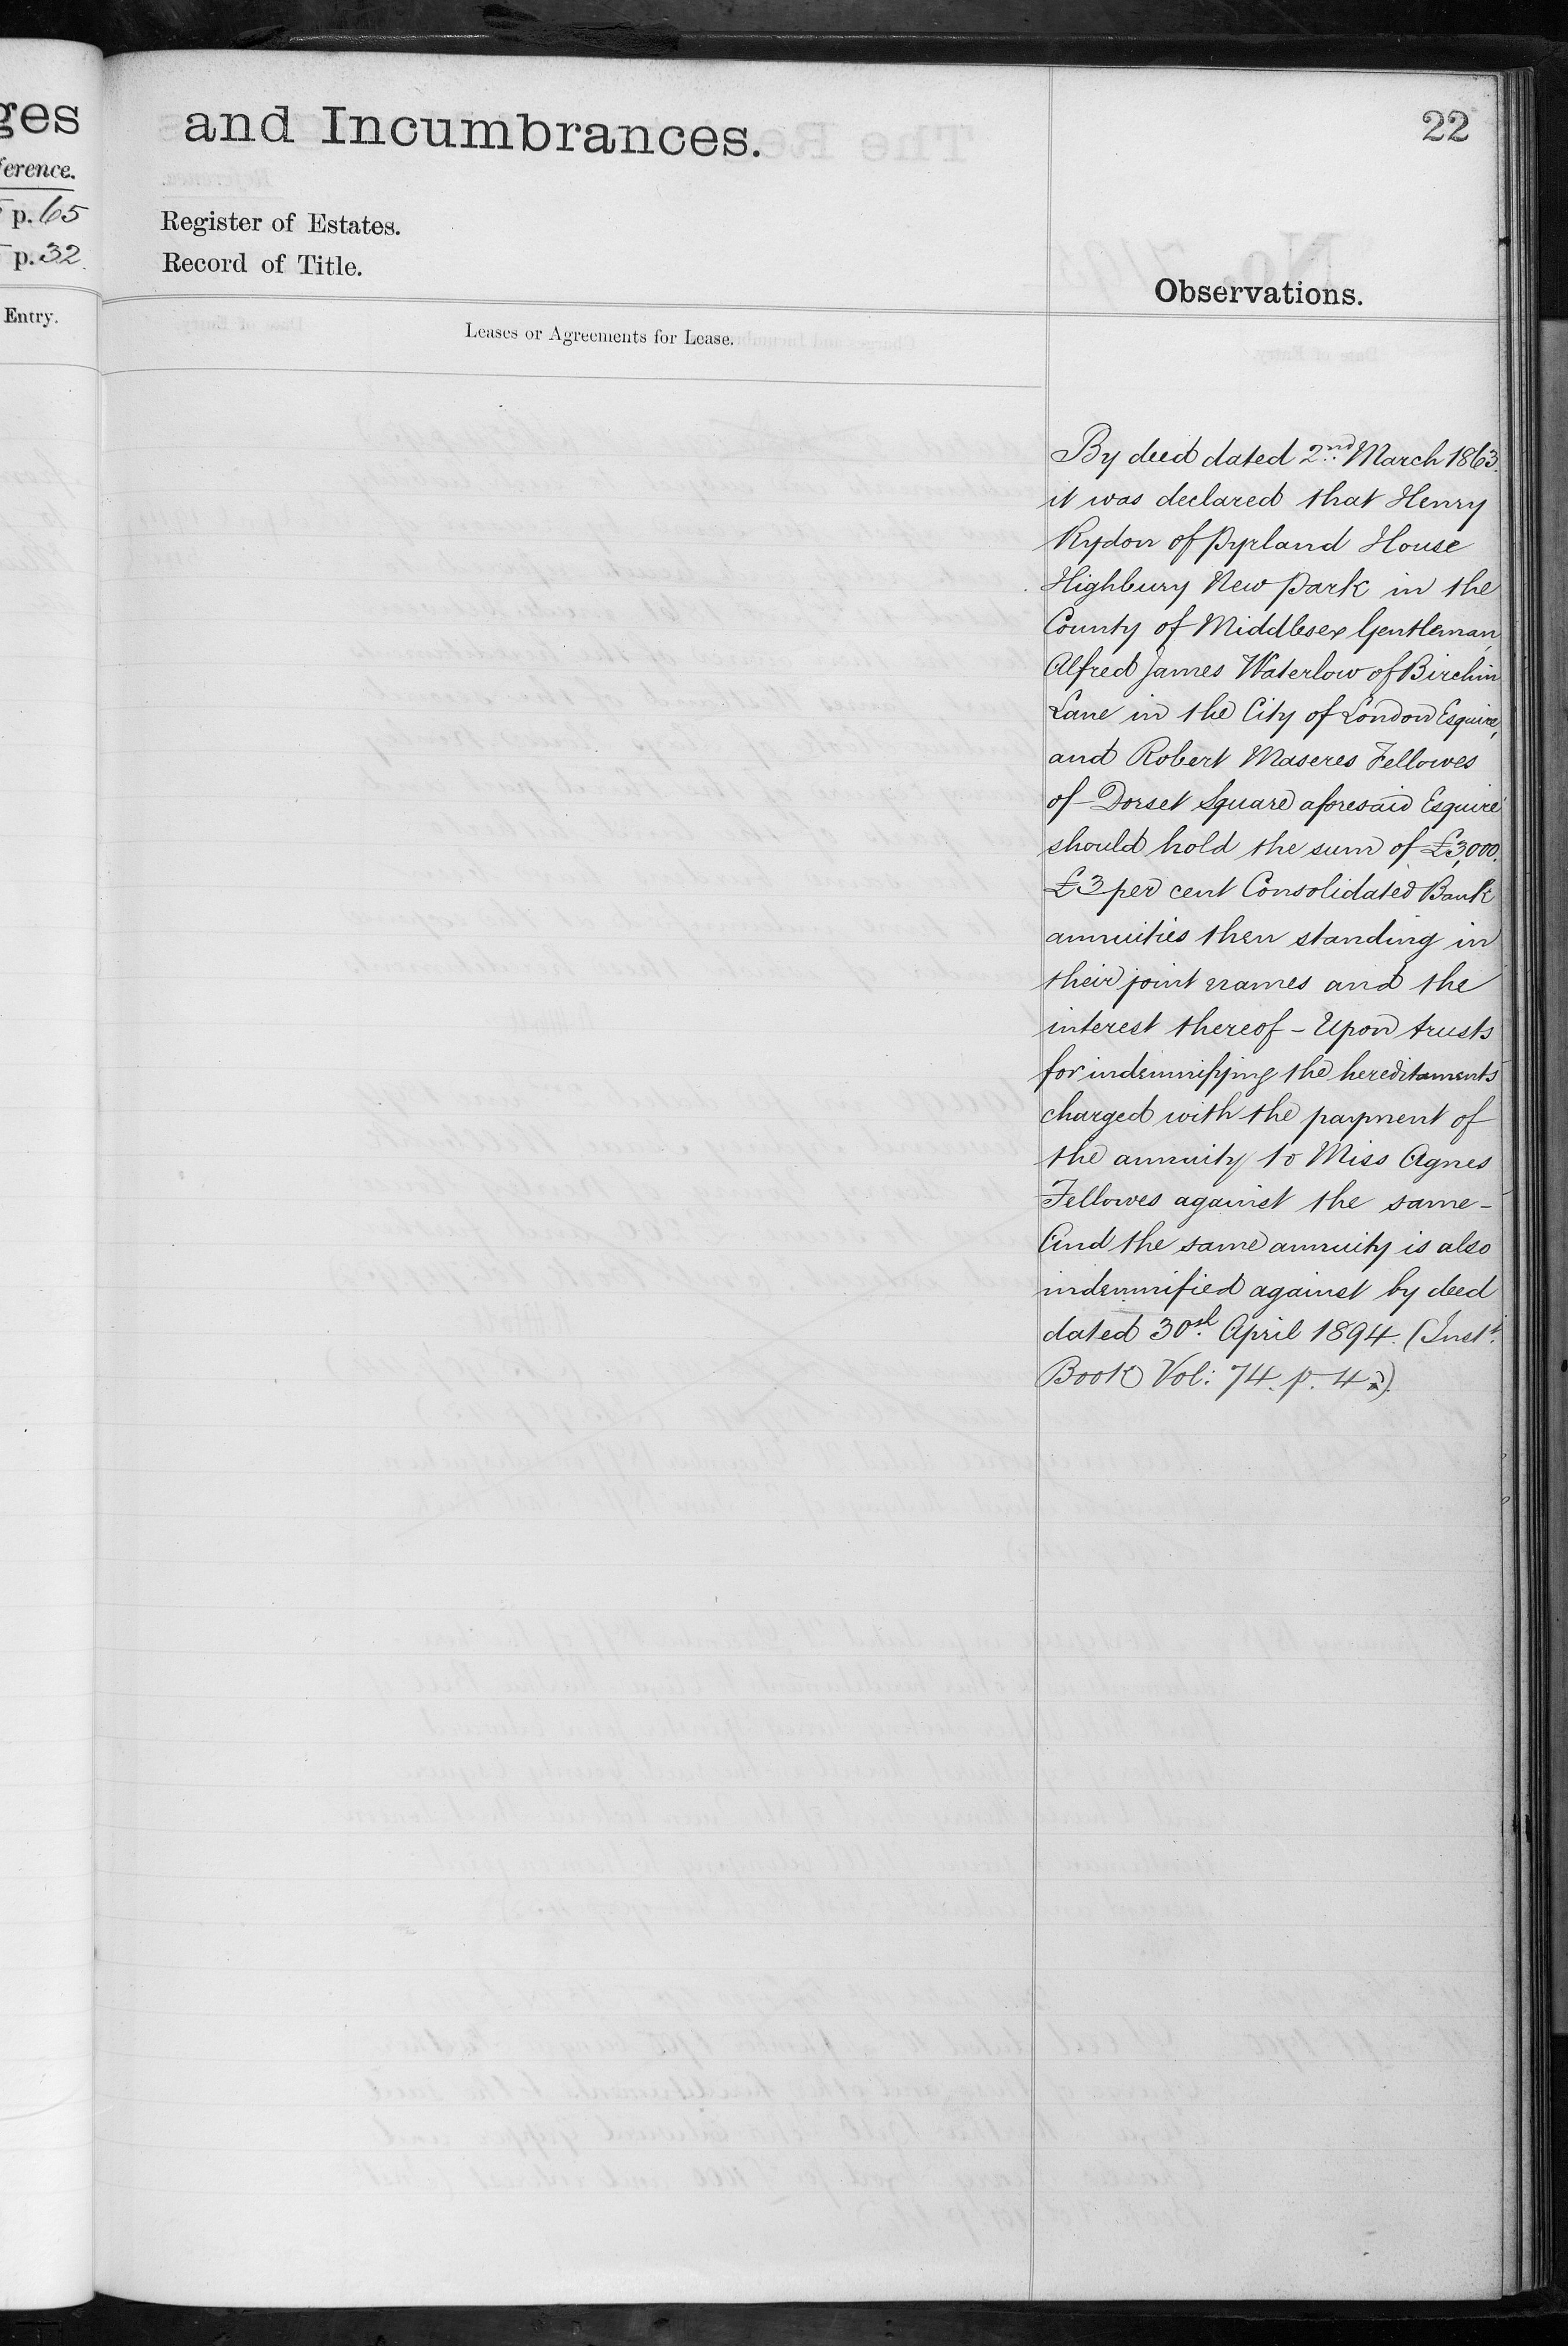 ges
ference.
p. 65
p. 32.
Entry.
and Incumbrances.
22
Register of Estates.
Record of Title.
Observations.
Leases or Agreements for Lease.
By deed dated 2nd March 1863.
it was declared that Henry
Rydon of Pyrland House
Highbury New Park in the
County of Middlesex Gentleman,
Alfred James Waterlow of Birchin
Lane in the City of London Esquire,
and Robert Maseres Fellowes
of Dorset Square aforesaid Esquire
should hold the sum of £3,000.
£3 per cent Consolidated Bank
annuities then standing in
their joint names and the
interest thereof – Upon trusts
for indemnifying the hereditaments
charged with the payment of
the annuity to Miss Agnes
Fellowes against the same –
And the same annuity is also
indemnified against by deed
dated 30th April 1894. (Instt.
Book Vol: 74. p. 4